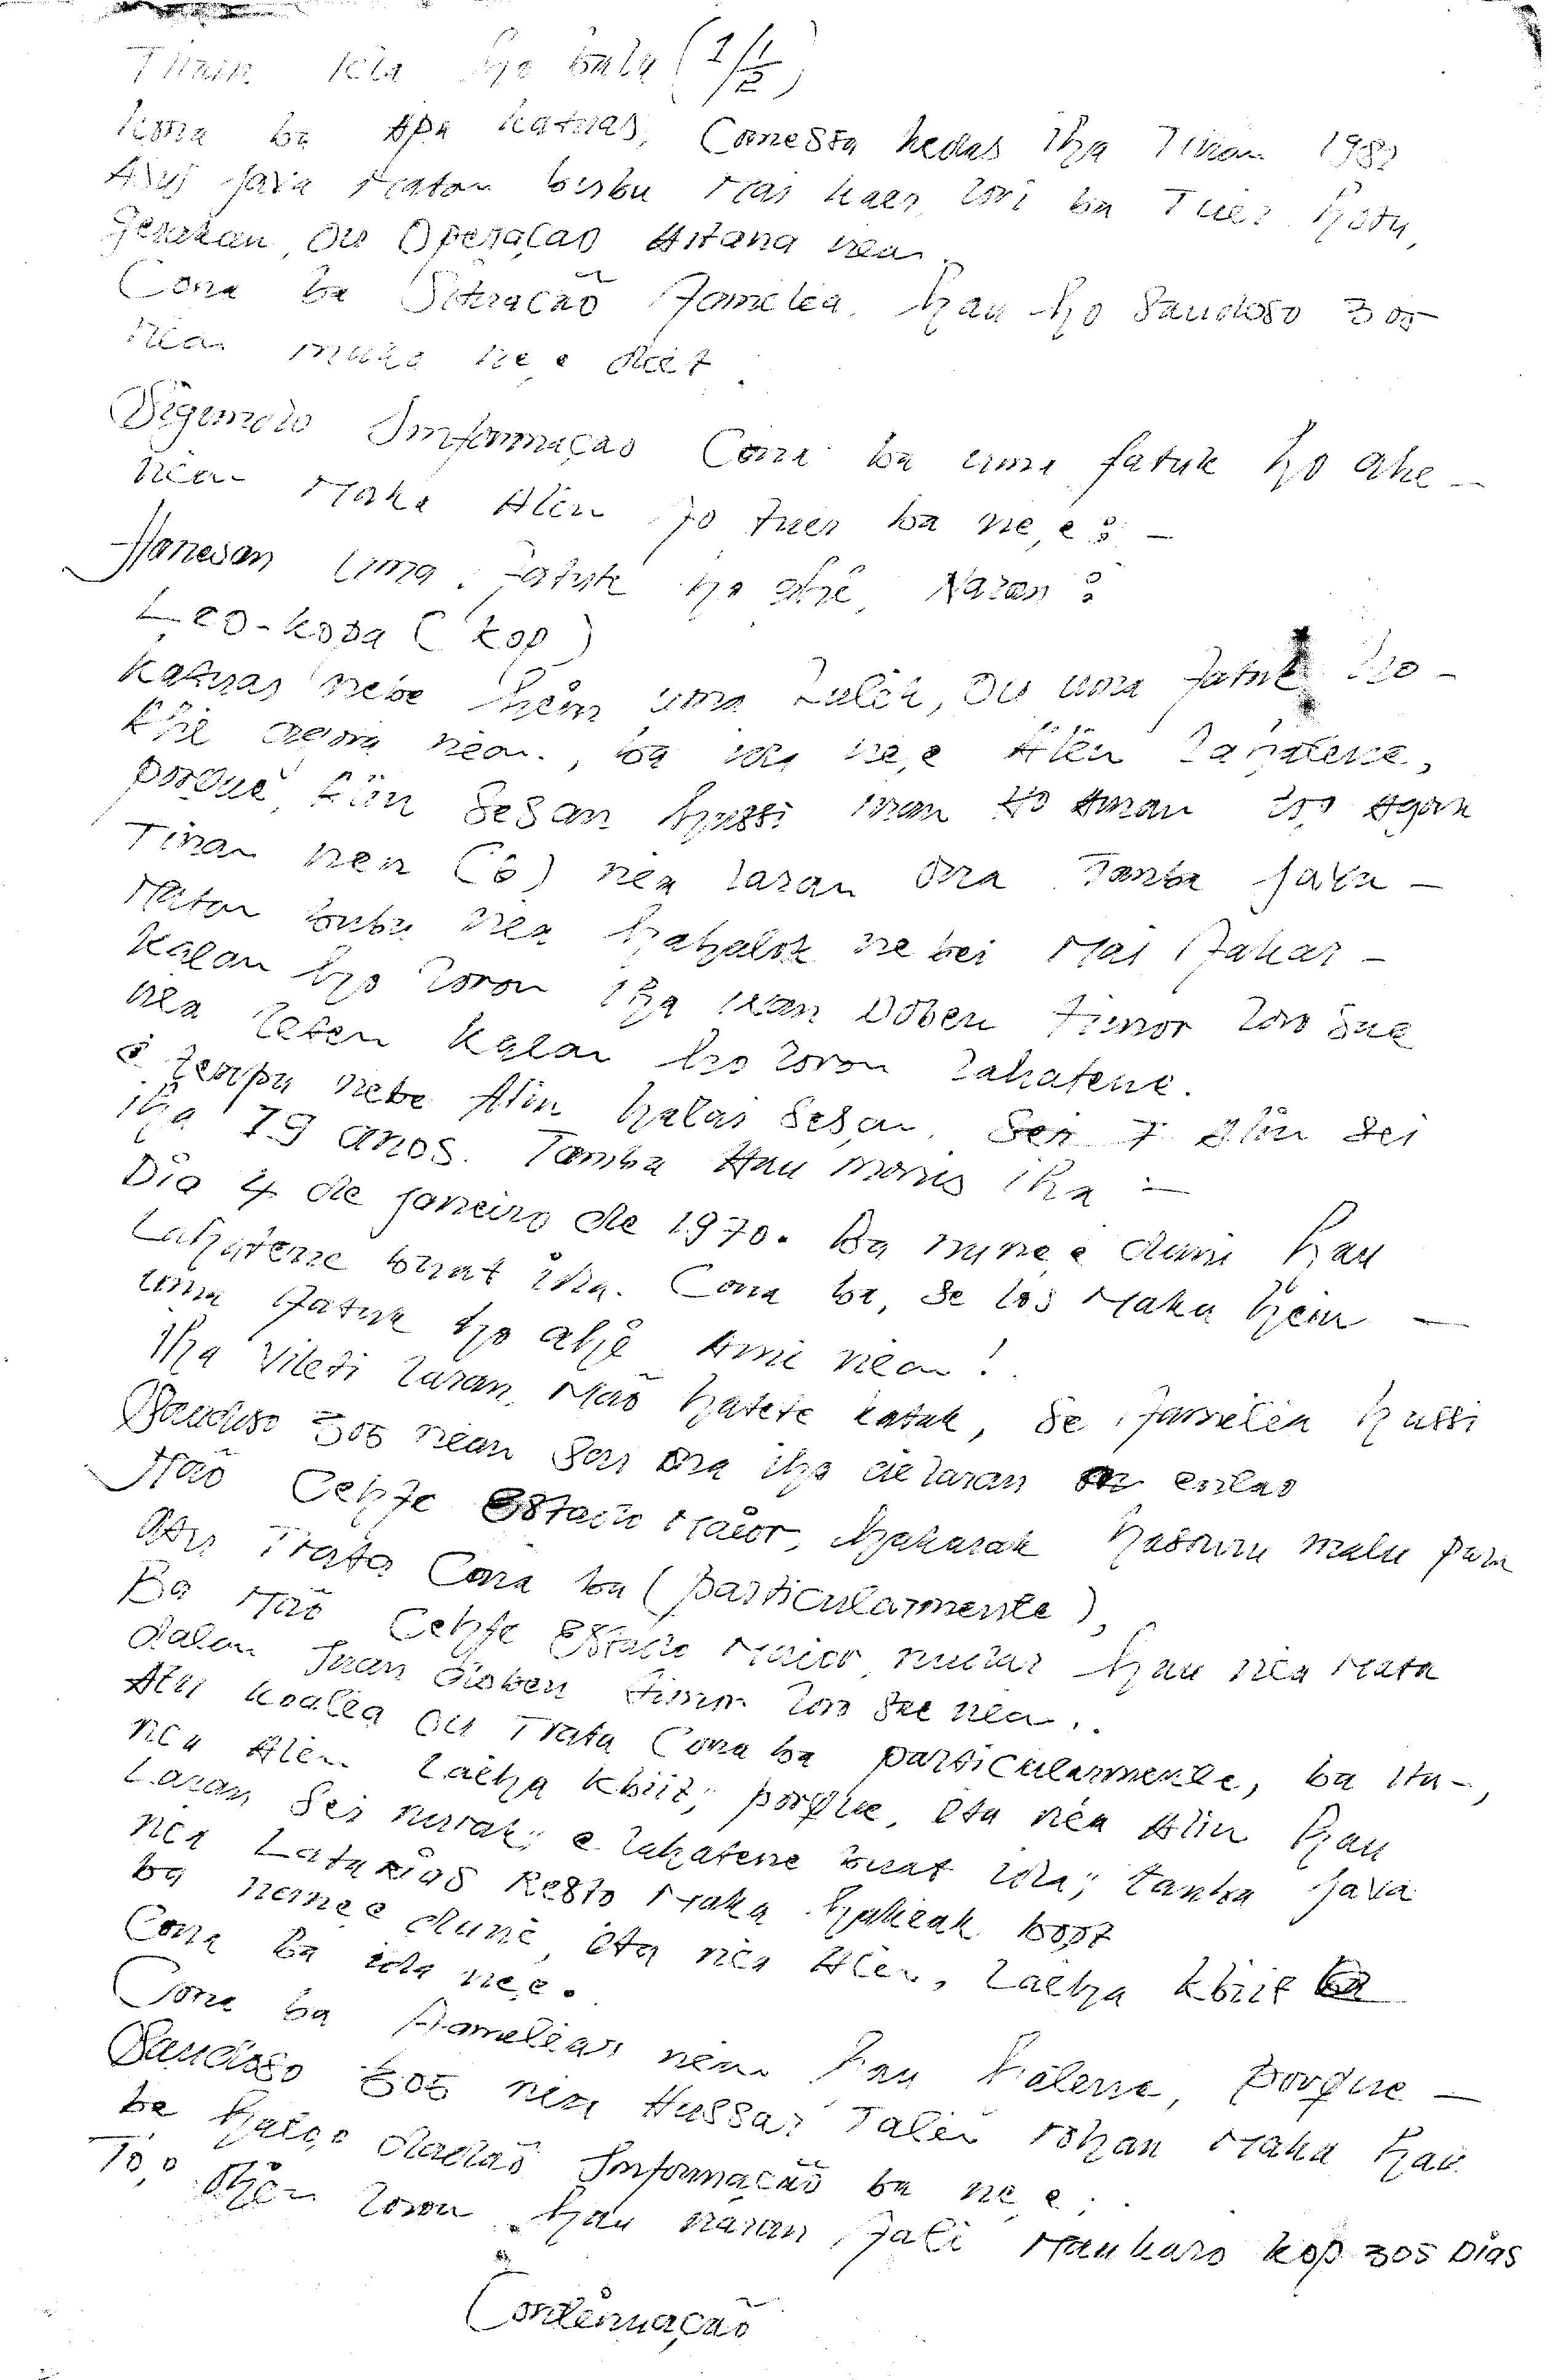 Tinan ida ho balu (1/1/2)
Kona ba apa katuas, Conessa kedas iha Tinan 1981
Asuj java maton bubu mai kaer lori ba Tuer hotu,
gerakan, ou Operaçao Aitana nean.
Cona ba Situacão Familia, hau ho Saudoso 305
nean muka ne,e deit.
Sigundo Imformaçao Cona ba uma fatuk ho ahe-
nean Maka Alin fo tuer ba ne,e:-
Hanesan uma fatuk ho ahê, Naran:
Leo-kora (kop)
katuas nebe hein uma lulik, ou uma fatuk ho-
Ahe nean., ba ida ne,e Alin lahatene,
porque, Alin Sesan hussi inan ho Aman too Agora
Tinan nen (6) nia laran ona Tamba java-
Maton bubu nia hahalok nebei Mai fahar-
Kalan ho loron iha rian Doben timor loro Sae
nia leten kalan ho loron lahatene.
e tempu nebe Alin halai Sesan, Sei 7 Alin Sei
iha 79 anos. Tamba Hau moris iha -
Dia 4 de janeiro de 1970. Ba nune,e duni hau
Lahatene buat ida. Cona ba, Se los Maka hein -
uma fatuk ho ahê Ami nean!
Iha Vileti laran, Maõ hatete katak, Se familia hussi
Saudoso 305 nean Sei ona iha cielaran enlao
Maõ Cehfe Estado Maior, hakarak hasouru malu para
Atu Trata Cona ba (particularmente),
Ba Maõ Cehfe Estado Maior, nudar hau nia Mata
dalan Juan doben timor loro Sae nian..
Atu koalia ou Trata Cona ba particularmente, ba ita-,
nia Alin laiha kbiit; porque, ita nia Alin hau
Laran Sei nurak; e lahatene buat ida; tanba java
nia Latarias Resto Maka hakiak boot
ba neine,e duni, ita nia Alin, laiha kbiit ba
Cona ba ida ne,e.
Cona ba Familias nian hau hatene, porque -
Saudoso 305 nia Hussar Talin rohan Maka hau
be halo,o dadaõ Informaçaõ ba ne,e;.
To,o ohin loron hau naran, Fali Maukaro kop 305 Dias
Contenuaçaõ